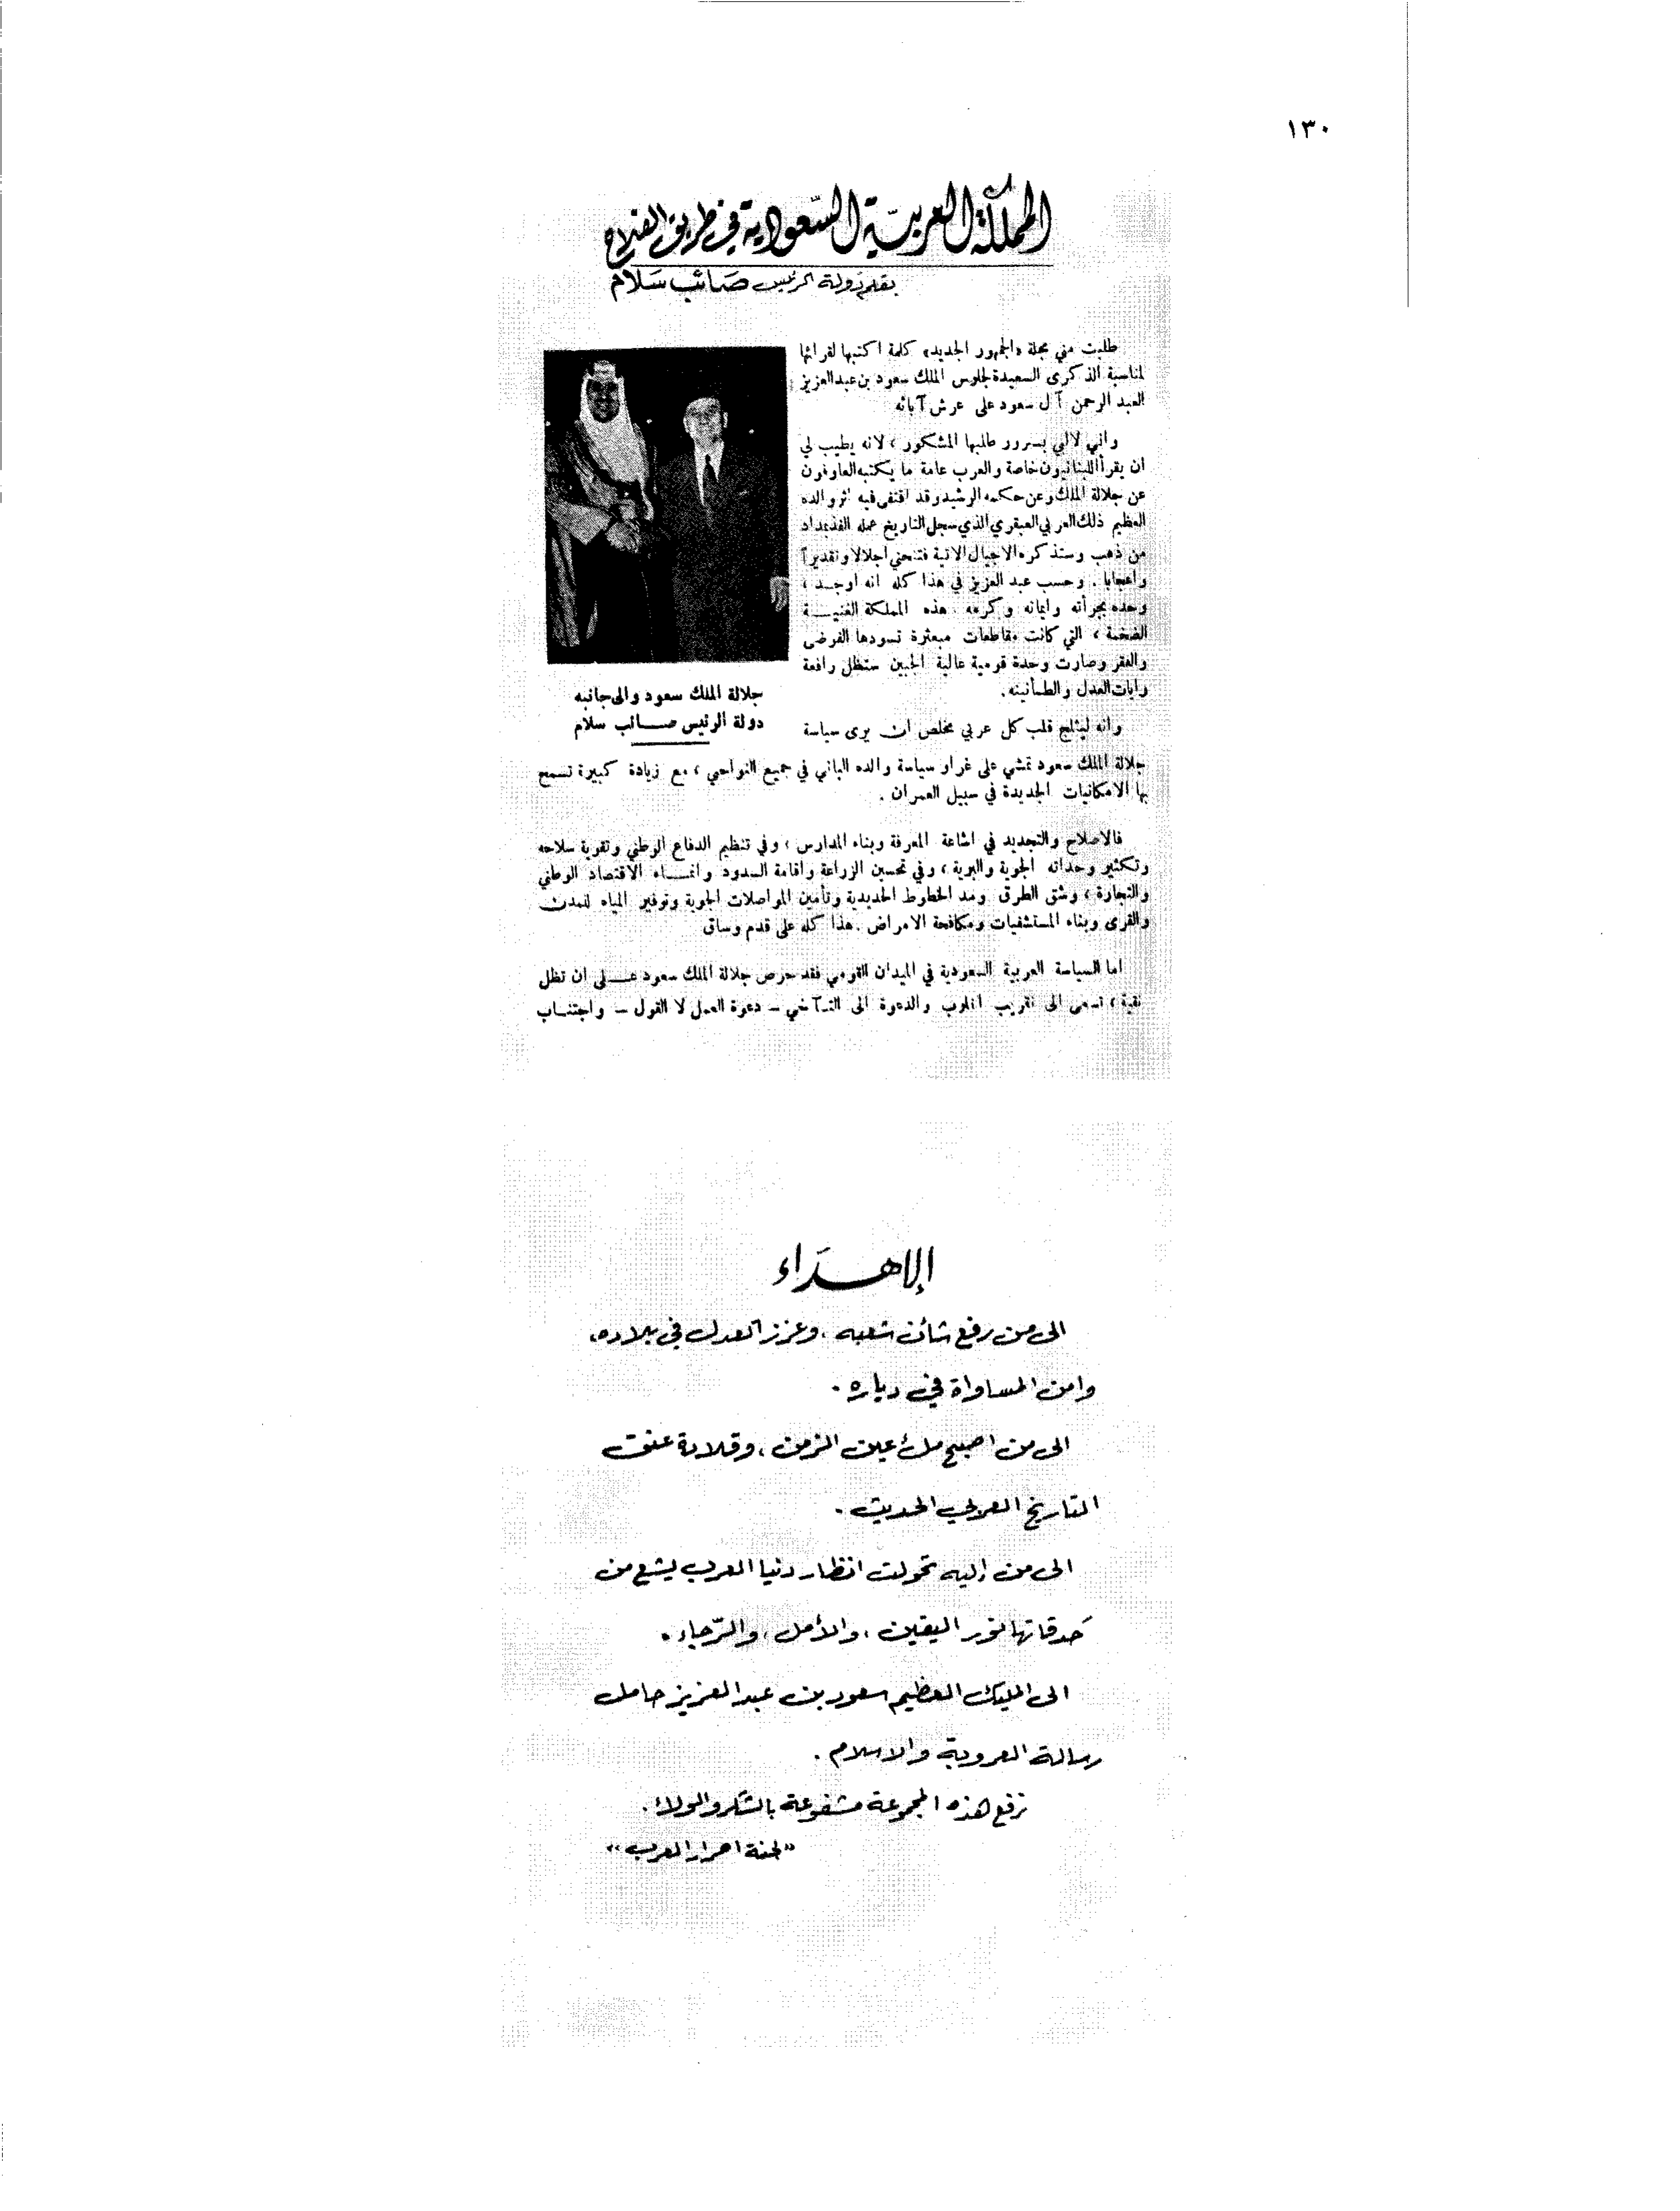 ١٣٠
المملكة العربيّة السّعودية في طريق الفلاح
بقلم دولة الرئيس صَائب سَلام
طلبت مني مجلة «الجمهور الجديد» كلمة اكتبها لقرائها
لمناسبة الذكرى السعيدة لجلوس الملك سعود بن عبد العزيز
العبد الرحمن آل سعود على عرش آبائه
واني لالبي بسرور طلبها المشكور ، لانه يطيب لي
ان يقرأ اللبنانيون خاصة والعرب عامة ما يكتبه العارفون
عن جلالة الملك وعن حكمه الرشيد وقد اقتفى فيه اثر والده
العظيم ذلك العربي العبقري الذي سجل التاريخ عمله الفذ بمداد
من ذهب وستذكره الاجيال الاتية فتنحني اجلالا وتقديراً
واعجابا . وحسب عبد العزيز في هذا كله انه اوجد ،
وحده بجرأته وايمانه وكرمه . هذه المملكة الغنية
الضخمة ، التي كانت مقاطعات مبعثرة تسودها الفوضى
والفقر وصارت وحدة قومية عالية الجبين ستظل رافعة
رايات العدل والطمأنينه .
جلالة الملك سعود والى جانبه
دولة الرئيس صائب سلام
وانه ليثلج قلب كل عربي مخلص ان يرى سياسة
جلالة الملك سعود تمشي على غرار سياسة والده الباني في جميع النواحي ، مع زيادة كبيرة تسمح
بها الامكانيات الجديدة في سبيل العمران .
فالاصلاح والتجديد في اشاعة المعرفة وبناء المدارس ، وفي تنظيم الدفاع الوطني وتقوية سلاحه
وتكثير وحداته الجوية والبرية ، وفي تحسين الزراعة واقامة السدود وانماء الاقتصاد الوطني
والتجارة ، وشق الطرق ومد الخطوط الحديدية وتأمين المواصلات الجوية وتوفير المياه للمدن
والقرى وبناء المستشفيات ومكافحة الامراض . هذا كله على قدم وساق
اما السياسة العربية السعودية في الميدان القومي فقد حرص جلالة الملك سعود على ان تظل
نقية ، تسعى الى تقريب القلوب والدعوة الى التآخي – دعوة العمل لا القول – واجتناب
الإهدَاء
الى من رفع شأن شعبه ، وعزز العدل في بلاده ،
وامن المساواة في دياره .
الى من اصبح ملء عين الزمن ، وقلادة عنق
التاريخ العربي الحديث .
الى من إليه تحولت انظار دنيا العرب يشع من
حَدقاتها نور اليقين ، والأمل ، والرّجاء .
الى المليك العظيم سعود بن عبد العزيز حامل
رسالة العروبة والاسلام .
نرفع هذه المجموعة مشفوعة بالشكر والولاء .
«لجنة احرار العرب»